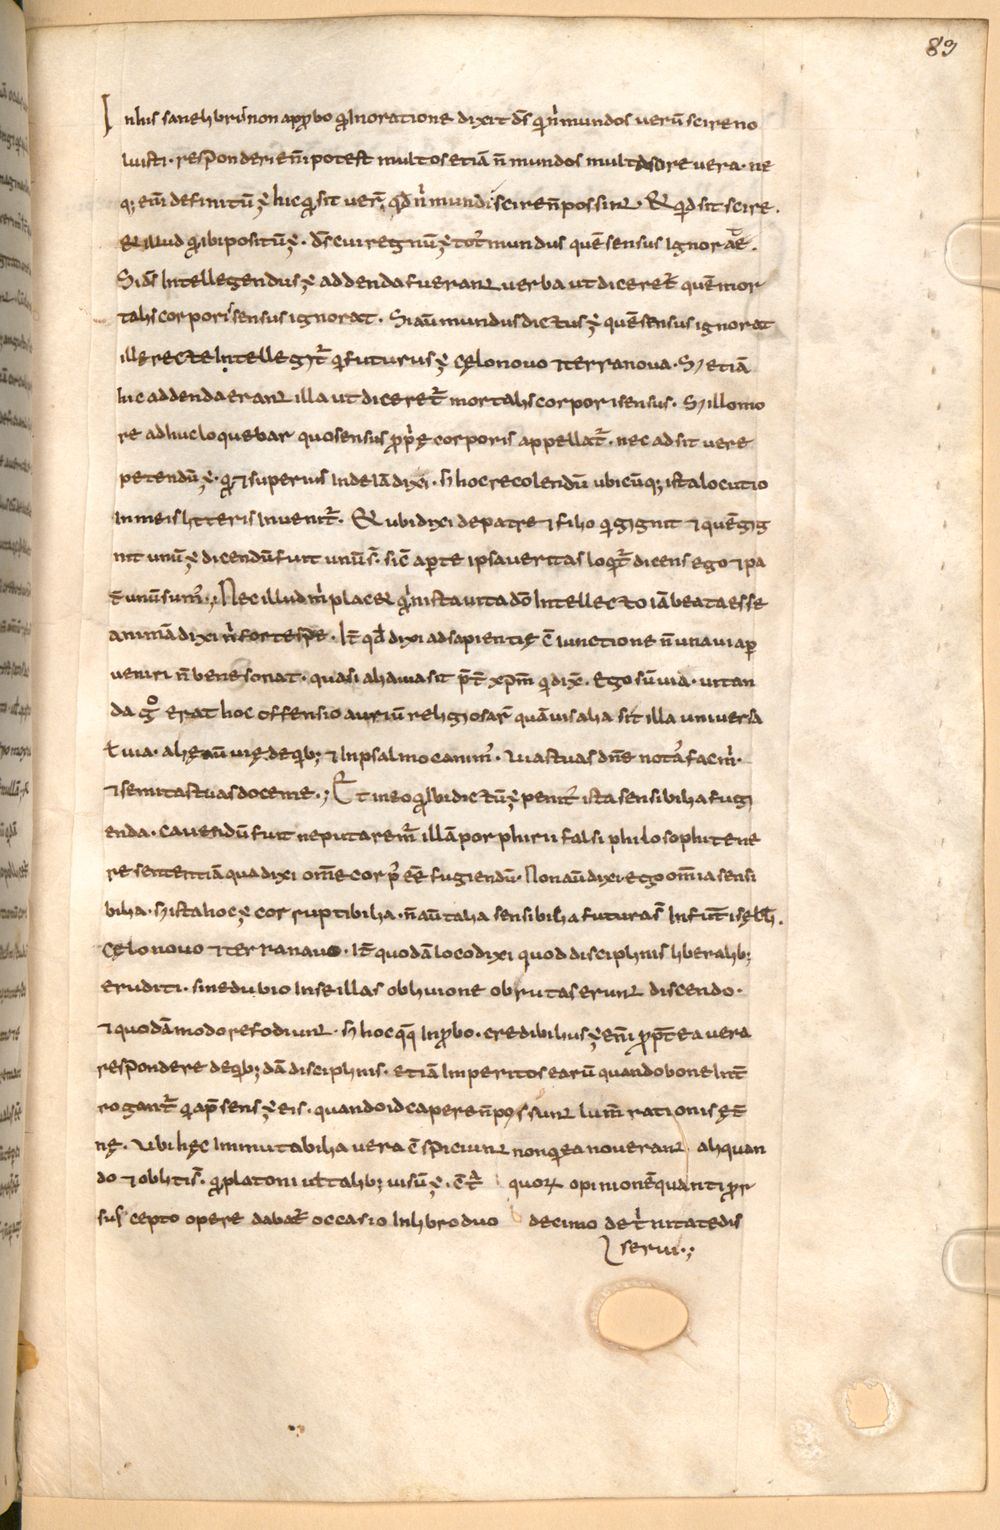 89
In his sane libris non approbo qđ In oratione dixi t ds qui n̄ mundos verū scire no
luisti · responderi en̄ı potest multos etiā n̄ mundos multa scire vera · ne
q; enı̄ definitū ÷ hic quid sit verū qđ n̄ mundi scire n̄ possint · Et qđ sit scire ·
Et illud qđ ibi positū ÷ · ds cui regnū ÷ tot' mundus quē sensus Ignorat ·
Si ds Intellegendus ÷ addenda fuerant verba ut diceret' quē mor
talis corporis sensus ignorat · Si aū mundus dictus ÷ quē sensus ignorat
ille recte Intellegit' qui futurus ÷ cęlo novo & terra nova · Sed etiā
hic addenda erant illa ut diceret' mortalis corporis sensus · Sed illo mo
re adhuc loquebar quo sensus p̄prie corporis appellat' · nec adsit vere
petendū ÷ · qđ & superius Inde iā dixi · sed hoc recolendū ubicūq; ista locutio
In meis litteris Invenit' · Et ubi dixi de patre & filio qui gignit & quē gig
nit unū ÷ dicendū fuit unū s̄ · sic̄ aperte ipsa veritas loquit' dicens ego & pa
t̄ unū sum' ·, Nec illud m̄ placet qđ In ista vita dō Intellecto iā beata esse
animā dixi n̄ forte spe · It̄ qđ dixi ad sapientię c̄iunctione n̄ una via per
veniri n̄ bene sonat · quasi alia via sit p̄t̄ xp̄m qui dix̄ · Ego sū via · vitan
da g° erat hoc offensio auriū religiosar̄ quāvis alia sit illa universa
ł via · alię aū vię de quib; & In psalmo canim' · vias tuas dn̄e notas fac m̄ ·
& semitas tuas doce me ·, Et In eo qđ Ibi dictū ÷ penit' ista sensibilia fugi
enda · cavendū fuit ne putarem' illā porphirii falsi philosophi tene
re sententiā qua dixi om̄e corp' ēē fugiendū · Non aū dixi ego om̄ia sensi
bilia · sed ista hoc ÷ corruptibilia · n̄ aū talia sensibilia futura s̄ In fut̄i sęcłi ·
Cęlo novo & terra nava · It̄ quodā loco dixi quod disciplinis liberalib;
eruditi · sine dubio In se illas oblivione obrutas erunt discendo ·
& quodā modo refodiunt · sed hoc quoq; Inprobo · credibilius ÷ enı̄ p̄pt̄ea vera
respondere de quib;dā disciplinis · etiā Imperitos earū quando bone Int̄
rogant' qđ ap̄sens ÷ eis · quando id capere n̄ possunt lum̄ rationis ęt̄
nę · Ubi hęc Immutabilia vera c̄spiciunt non quia ea noverant aliquan
do & obliti s̄ · qđ platoni vł talib; visū ÷ · c̄t' quorū opinionē quanti pr̄
suscepto opere dabat' occasio In libro duo decimo de t̄nitate dis
serui ·;